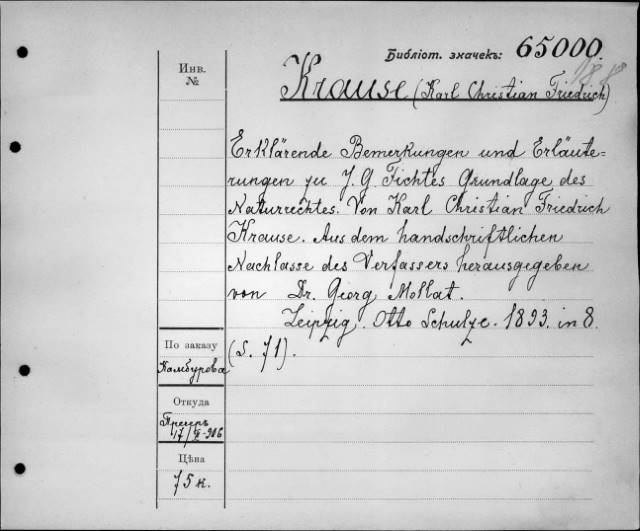 Библіот. значекъ: 65000.
Инв.
№
Krause (Karl Christian Friedrich)
Erklärende Bemerkungen und Erläute=
rungen zu J. G. Fichtes Grundlage des
Naturrechtes. Von Karl Christian Friedrich
Krause. Aus dem handschriftlichen
Nachlasse des Verfassers herausgegeben
von Dr. Georg Mollat.
Leipzig. Otto Schulze. 1893. in 8.
(S. 71).
По заказу
Камбурова
Откуда
17/ -906
Цѣна
75 к.